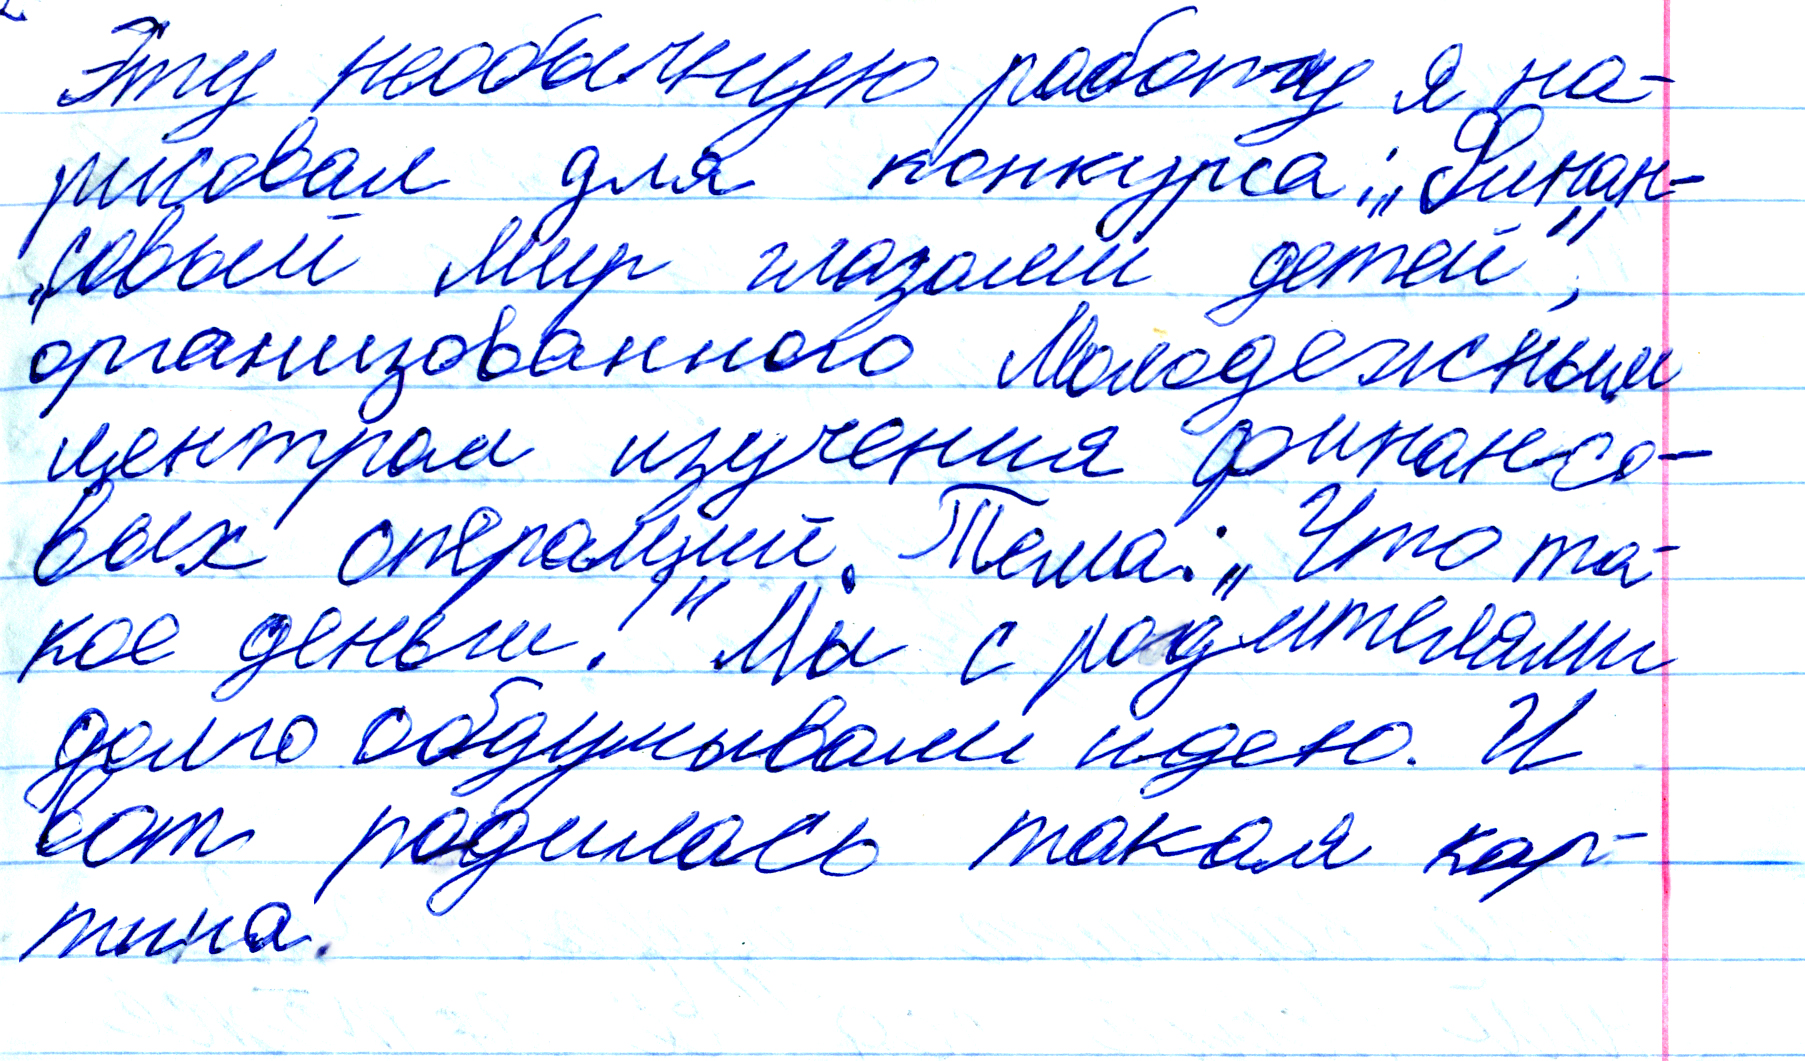 Эту необычную работу я на-
рисовал для конкурса: „Финан-
„совый мир глазами детей",
организованного Молодежным
центром изучения финансо-
вых операций. Тема: „Что та-
кое деньги!" Мы с родителями
долго обдумывали идею. И
вот родилась такая кар-
тина.